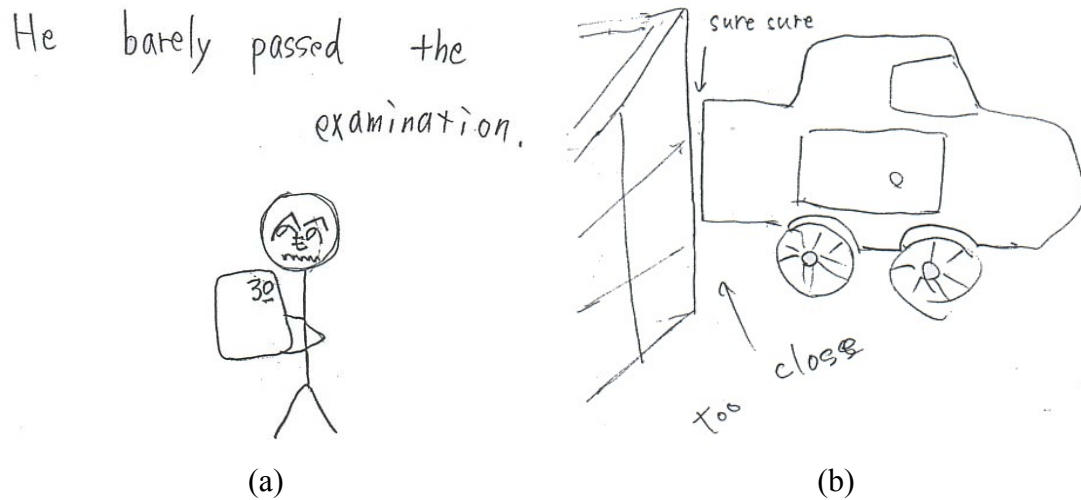 He barely passed the
examination.
30
(a)
sure sure
too close
(b)